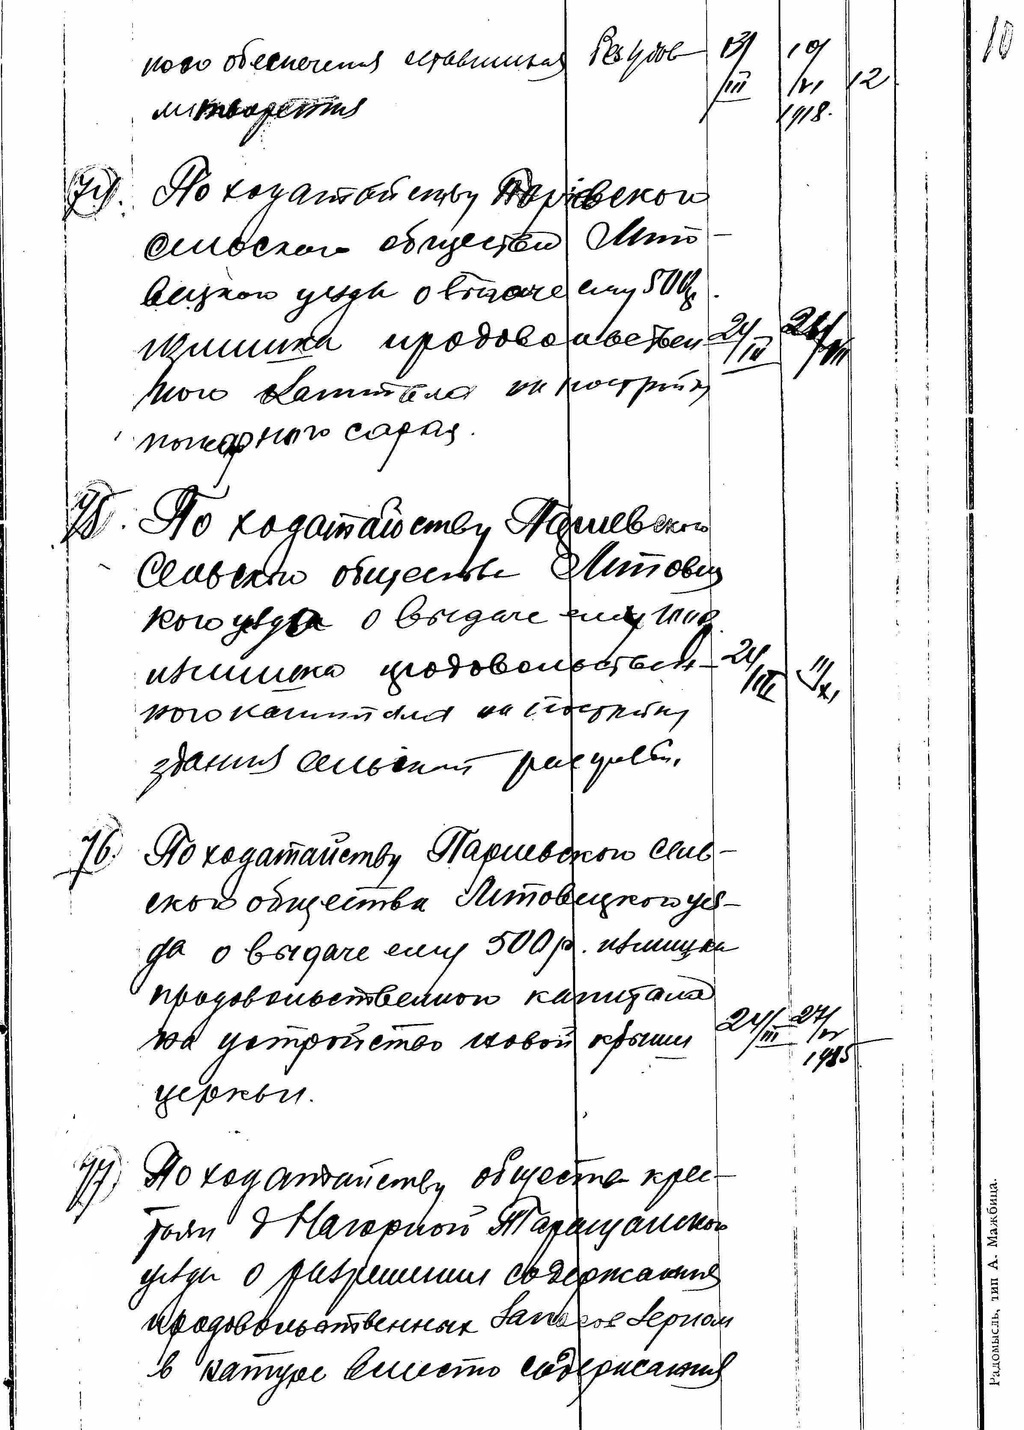 10
ного обеспечения оставшихся 13/III 19/VI 1918. 12
74). По ходатайству Париевского
сельского общества Липо-
вецкого уезда о выдаче ему 500р.
излишка продовольствен- 24/III 26/VIII
ного капитала на постройку
пожарного сарая.
75. По ходатайству Париевского
сельского общества Липовец
кого уезда о выдаче ему
излишка продовольствен- 24/III 11/XI
ного капитала на постройку
здания сельской расправы.
76. По ходатайству Париевского сель-
ского общества Липовецкого уез-
да о выдаче ему 500р. излишка
продовольственного капитала
на устройство новой крыши 24/III 27/VI
церкви.
77) По ходатайству общества крес-
тьян д Нагорной Таращанского
уезда о разрешении содержания
продовольственных запасов зерном
в натуре вместо содержания
Радомысль, тип А. Мажбица.